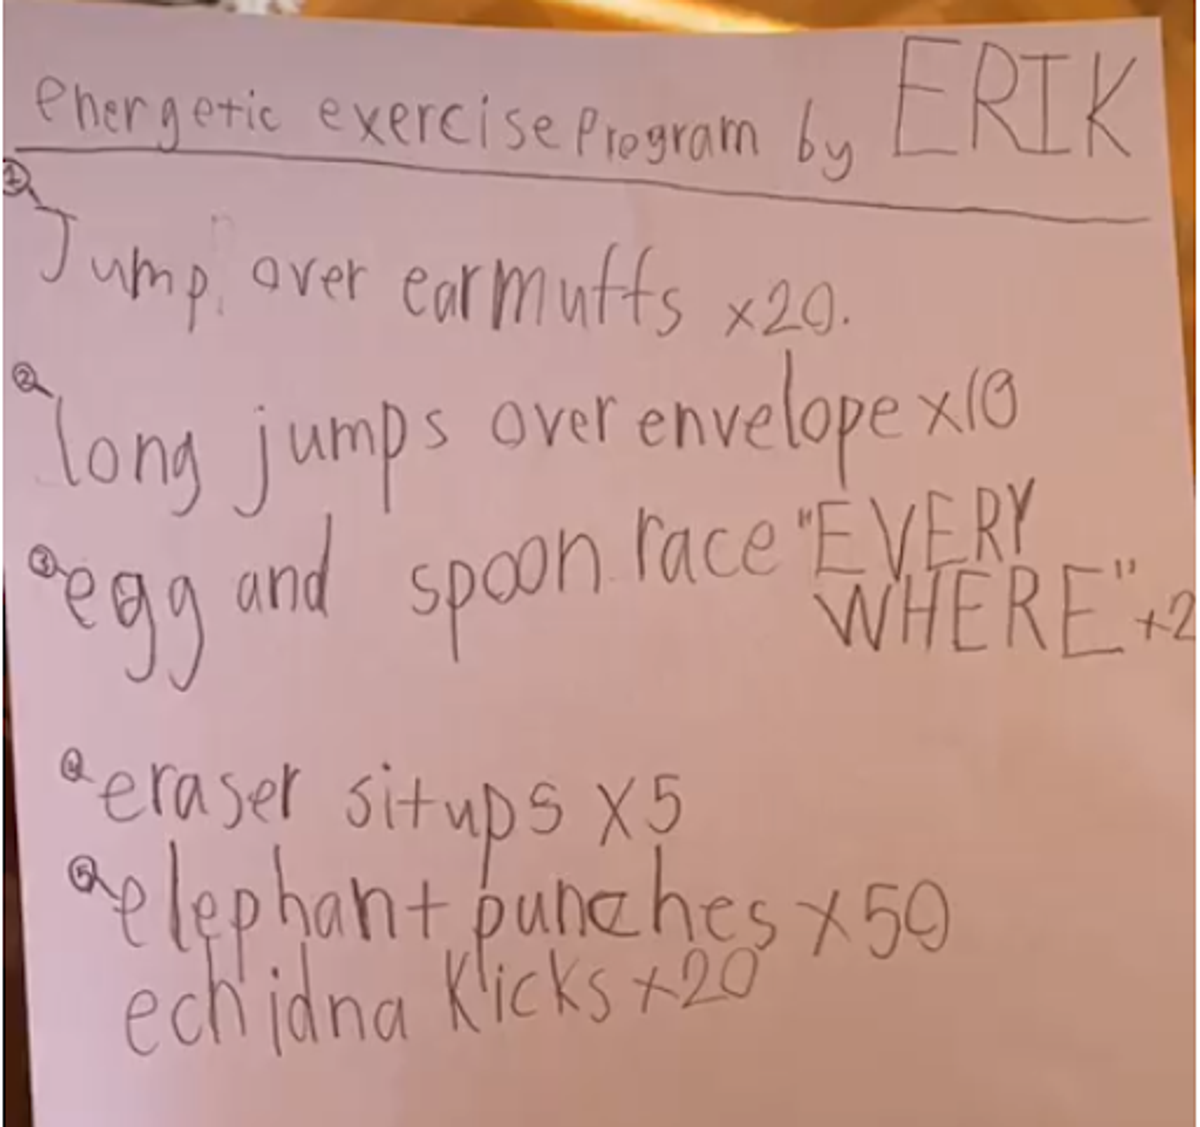 energetic exercise Program by ERIK
① Jump over earmuffs x20.
② long jumps over envelope x10
③ egg and spoon race "EVERY
WHERE" x2
④ eraser situps x5
⑤ elephant punches x50
echidna kicks x20